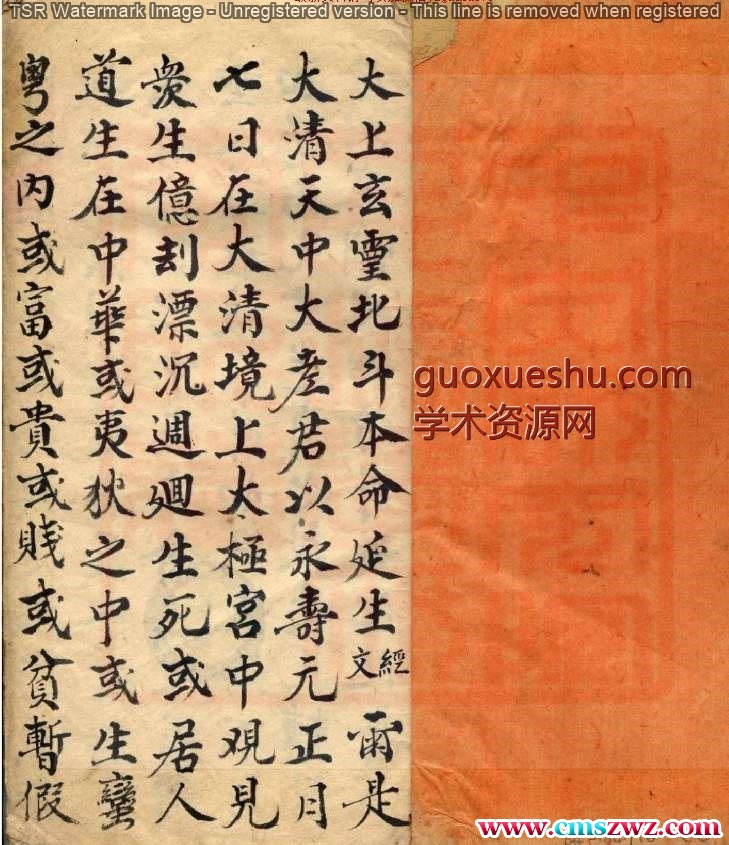 TSR Watermark Image - Unregistered version - This line is removed when registered
大上玄霊北斗本命延生經文 爾是
大清天中大老君以永壽元正月
七日在大清境上大極宮中观見
衆生億刼漂沉週廻生死或居人
道生在中華或夷狄之中或生蠻
粤之内或富或貴或賤或貧暫假
guoxueshu.com
学术资源网
www.cmszwz.com